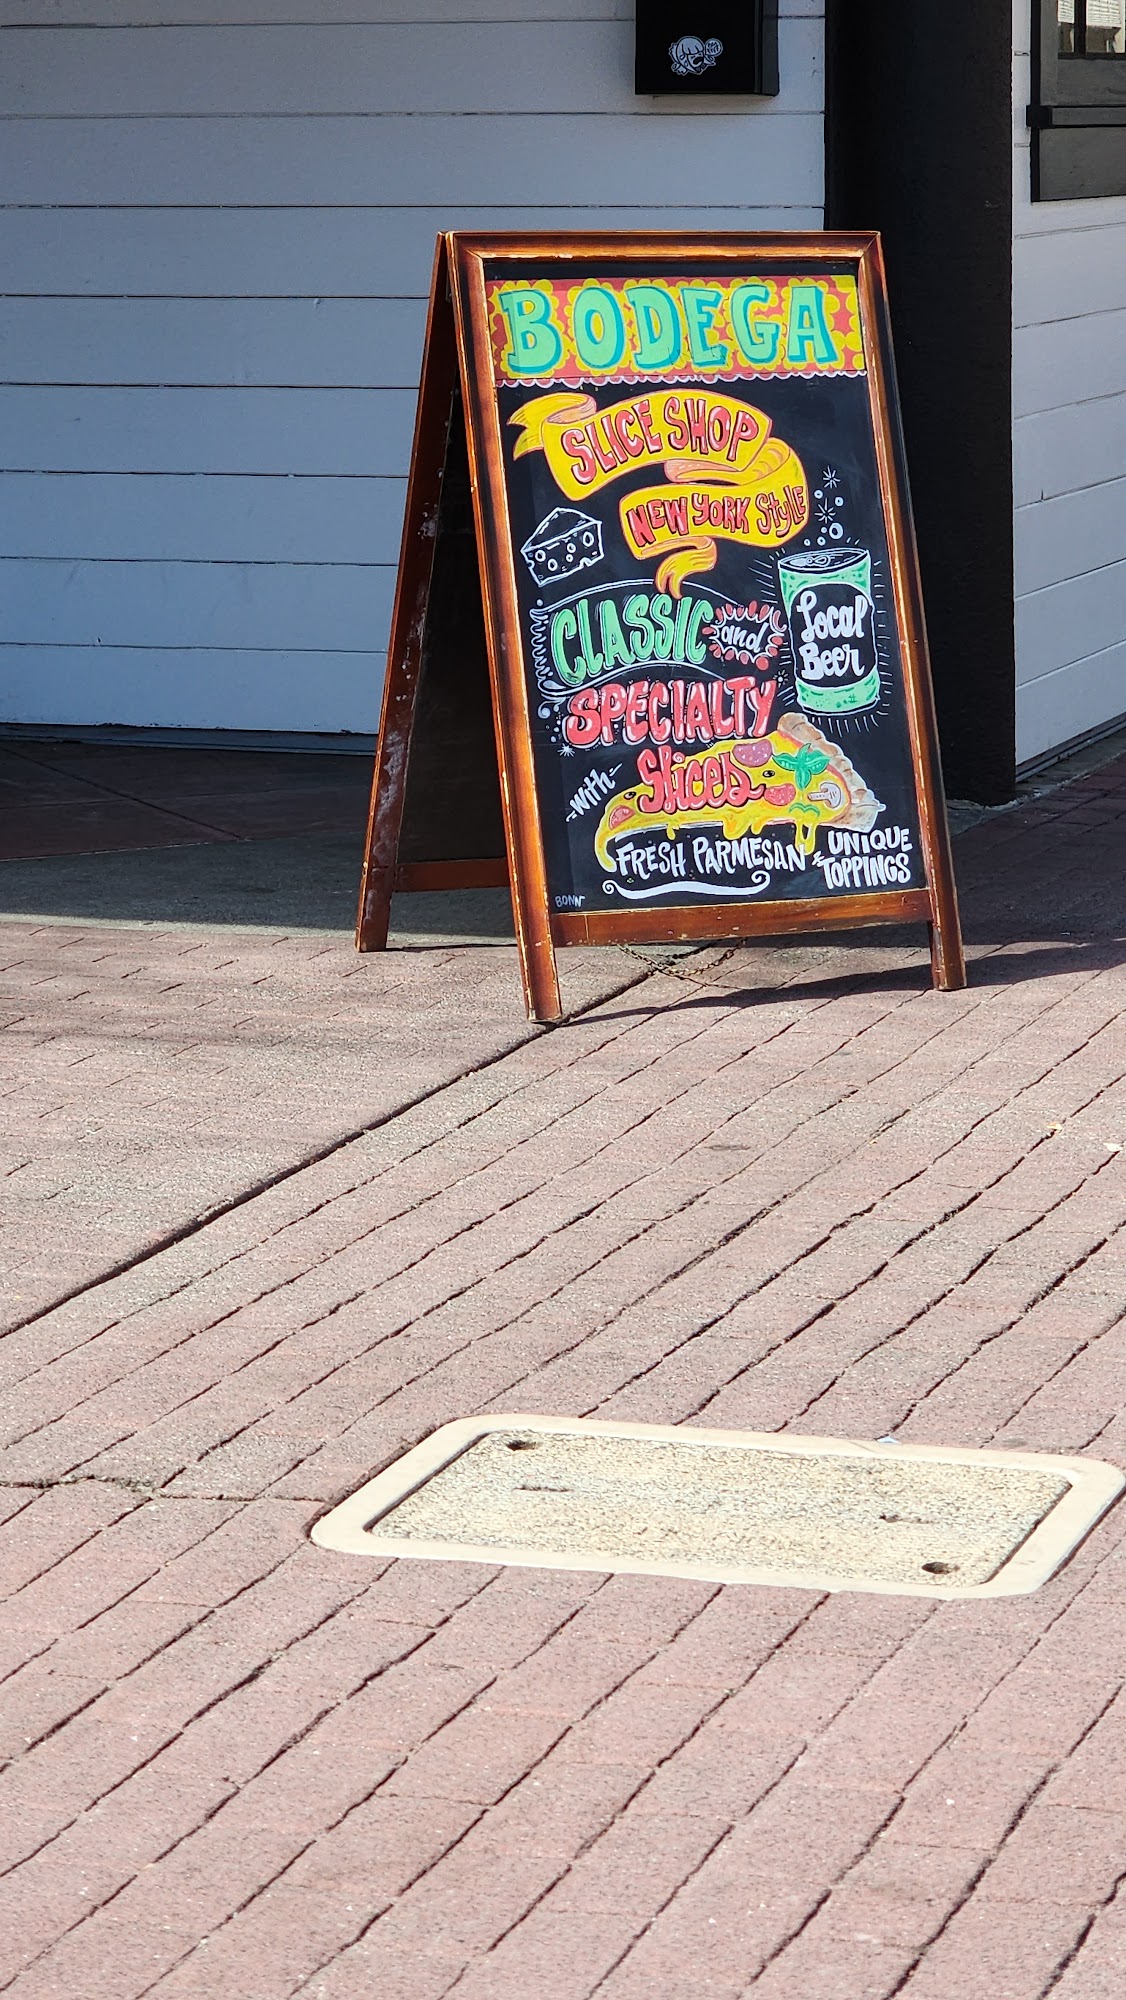 BODEGA
SLICE SHOP
NEW YORK Style
CLASSIC and
Local
Beer
SPECIALTY
Slices
with
FRESH PARMESAN
UNIQUE
TOPPINGS
BONN